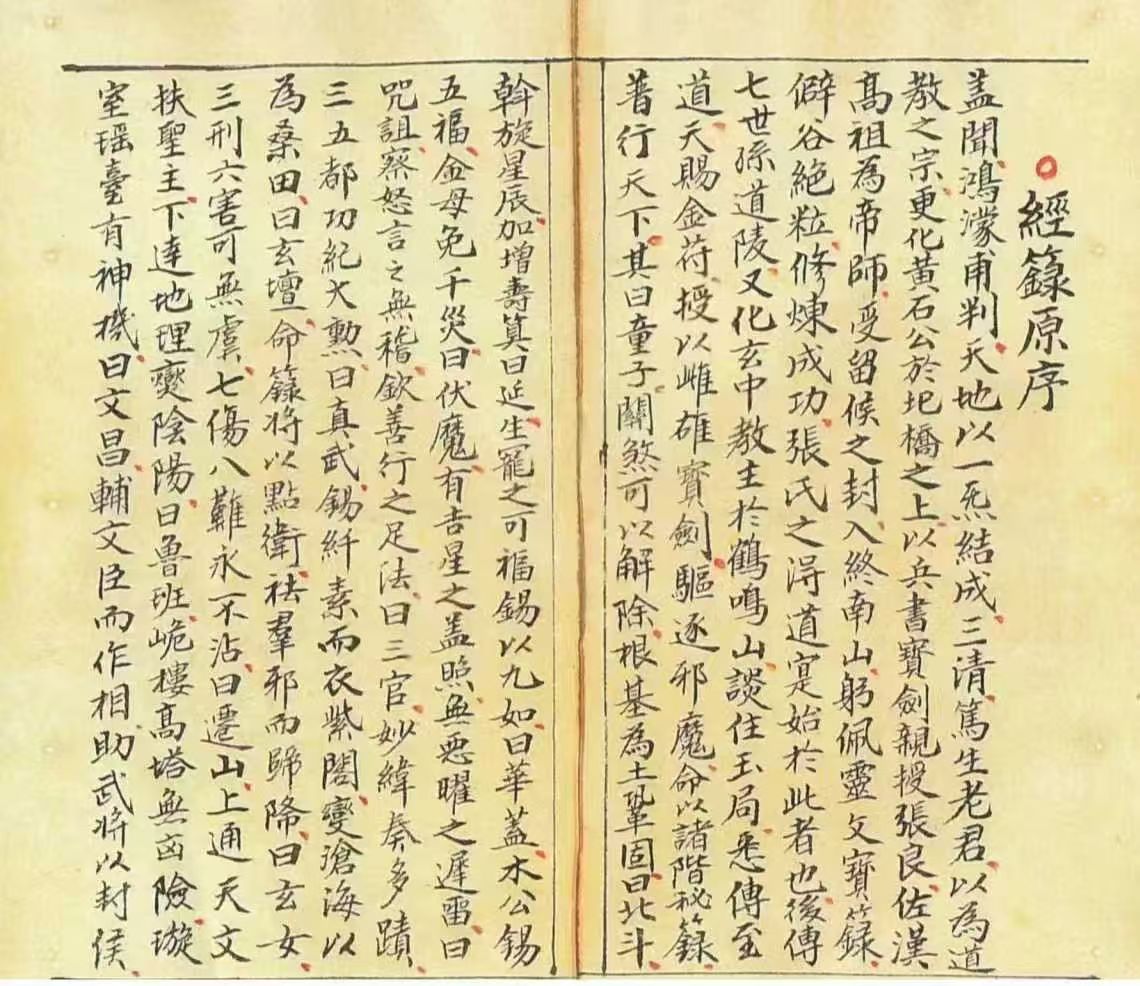 經籙原序
盖聞鴻濛甫判天地以一炁結成三清篤生老君以為道
教之宗更化黃石公於圯橋之上以兵書寶劍親授張良佐漢
高祖為帝師受留候之封入終南山躬佩靈文寶籙
僻谷絕粒修煉成功張氏之淂道寔始於此者也後傳
七世孫道陵又化玄中教主於鶴鳴山談住玉局悉傳至
道天賜金苻授以雌雄寶劍驅逐邪魔命以諸階秘籙
普行天下其曰童子關煞可以解除根基為土鞏固曰北斗
斡旋星辰加增壽算曰延生寵之可福錫以九如曰華蓋木公錫
五福金母免千災曰伏魔有吉星之盖照無惡曜之遲畱曰
咒詛察怒言之無稽欽善行之足法曰三官妙緯奏多蹟
三五都功紀大勲曰真武錫纤素而衣紫閣變滄海以
為桑田曰玄壇命籙將以點衛祛羣邪而歸降曰玄女
三刑六害可無虞七傷八難永不沾曰遷山上通天文
扶聖主下達地理燮陰陽曰魯班峗樓高塔無凶險璇
室瑶臺有神機曰文昌輔文臣而作相助武將以封侯